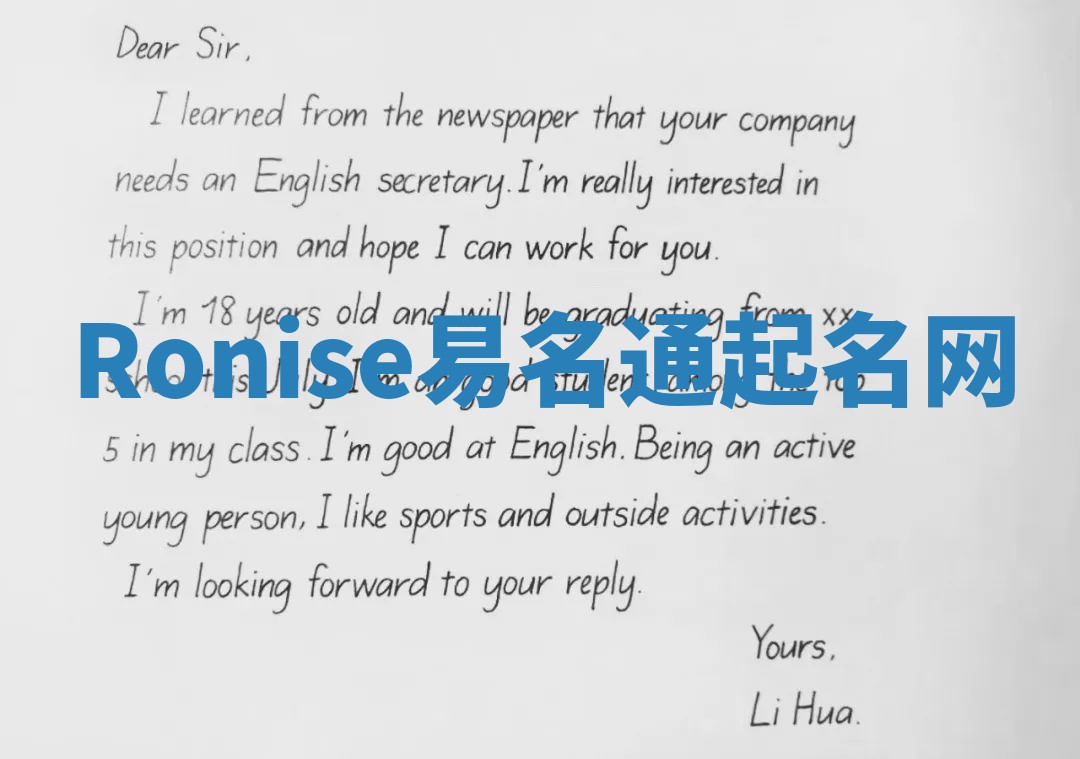 Dear Sir,
I learned from the newspaper that your company
needs an English secretary. I'm really interested in
this position and hope I can work for you.
I'm 18 years old and will be graduating from xx
Ronise易名通起名网
school this July. I'm a good student among the top
5 in my class. I'm good at English. Being an active
young person, I like sports and outside activities.
I'm looking forward to your reply.
Yours,
Li Hua.